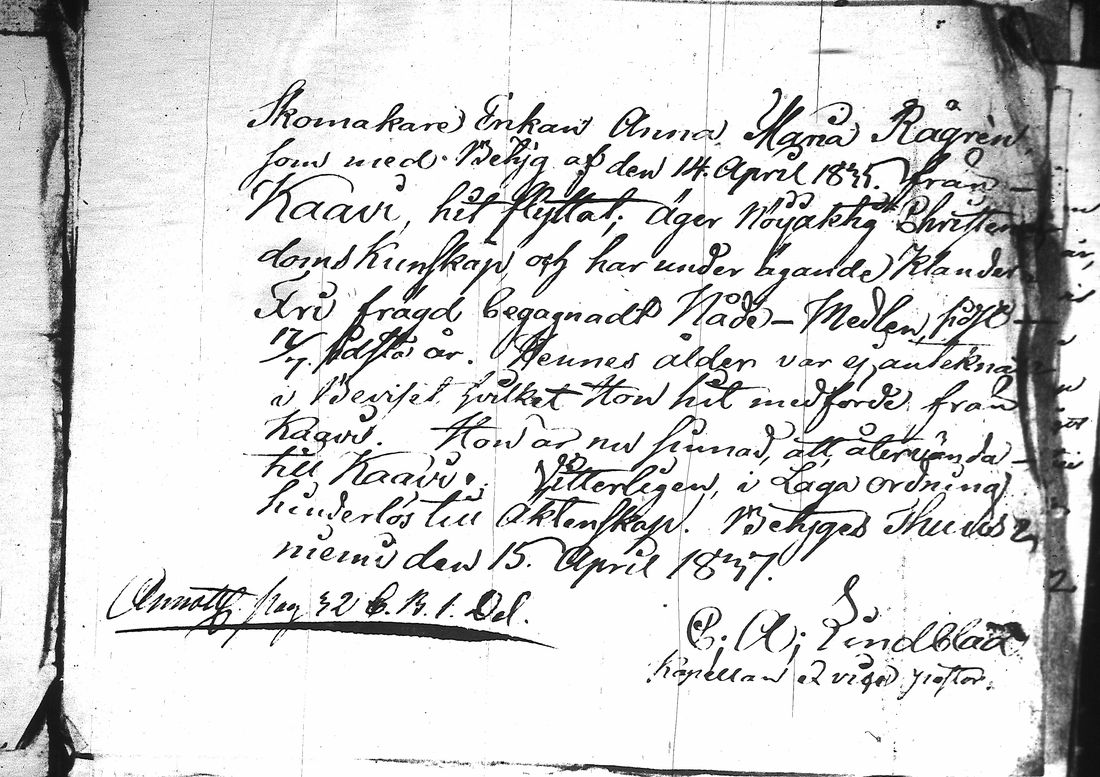 Skomakare Enkan Anna Maria Rågrèn,
som med Betyg af den 14. April 1835. från –
Kaavi, hit flyttat; äger Nöÿaktig Christen
doms Kunskap, och har under ägande Klander
Fri frägd begagnadt Nåde – Medlen, sist –
17/7 sidstl. år. Hennes ålder var ej anteknad
i Beviset hvilket Hon hit medförde från
Kaavi. Hon är nu sinnad, att återvända –
till Kaavi. Vitterligen, i Laga ordning
hinderlös till Äktenskap. Betyges Thuus
niemi den 15. April 1837.
Annott. pag 32 C. B. 1. Del.
C. A. Lindblad
Kapellan